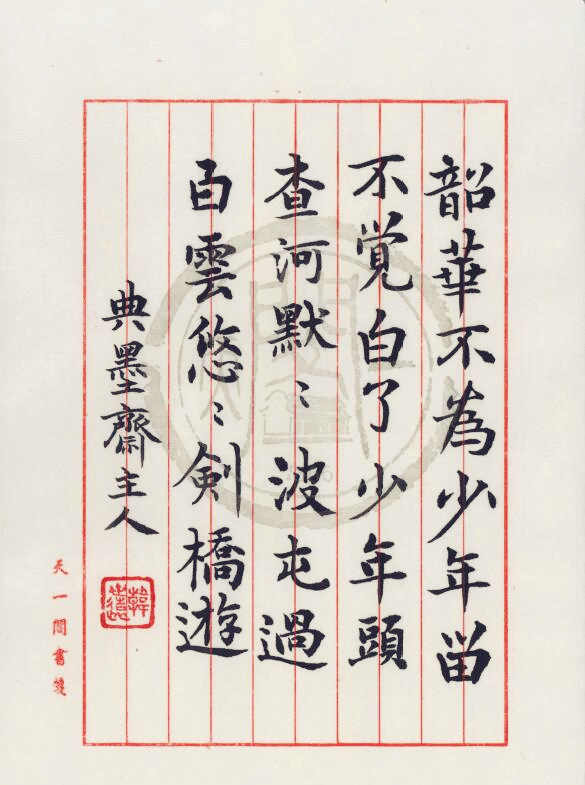 韶華不為少年留
不覚白了少年頭
查河默〻波屯過
百雲悠〻剣橋遊
典墨齋主人
天一閣書箋